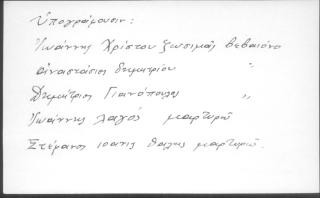 Ὑπογράφουσιν:
Ἰωάννης Χρίστου ζωσιμᾶς βεβαιόνο
ἀναστάσιος δημητρίου "
Δημήτριος Γιανόπουλος "
Ἰωάννης λαγός μαρτυρῶ
Στέφανος ιοανις θαλης μαρτυρῶ.